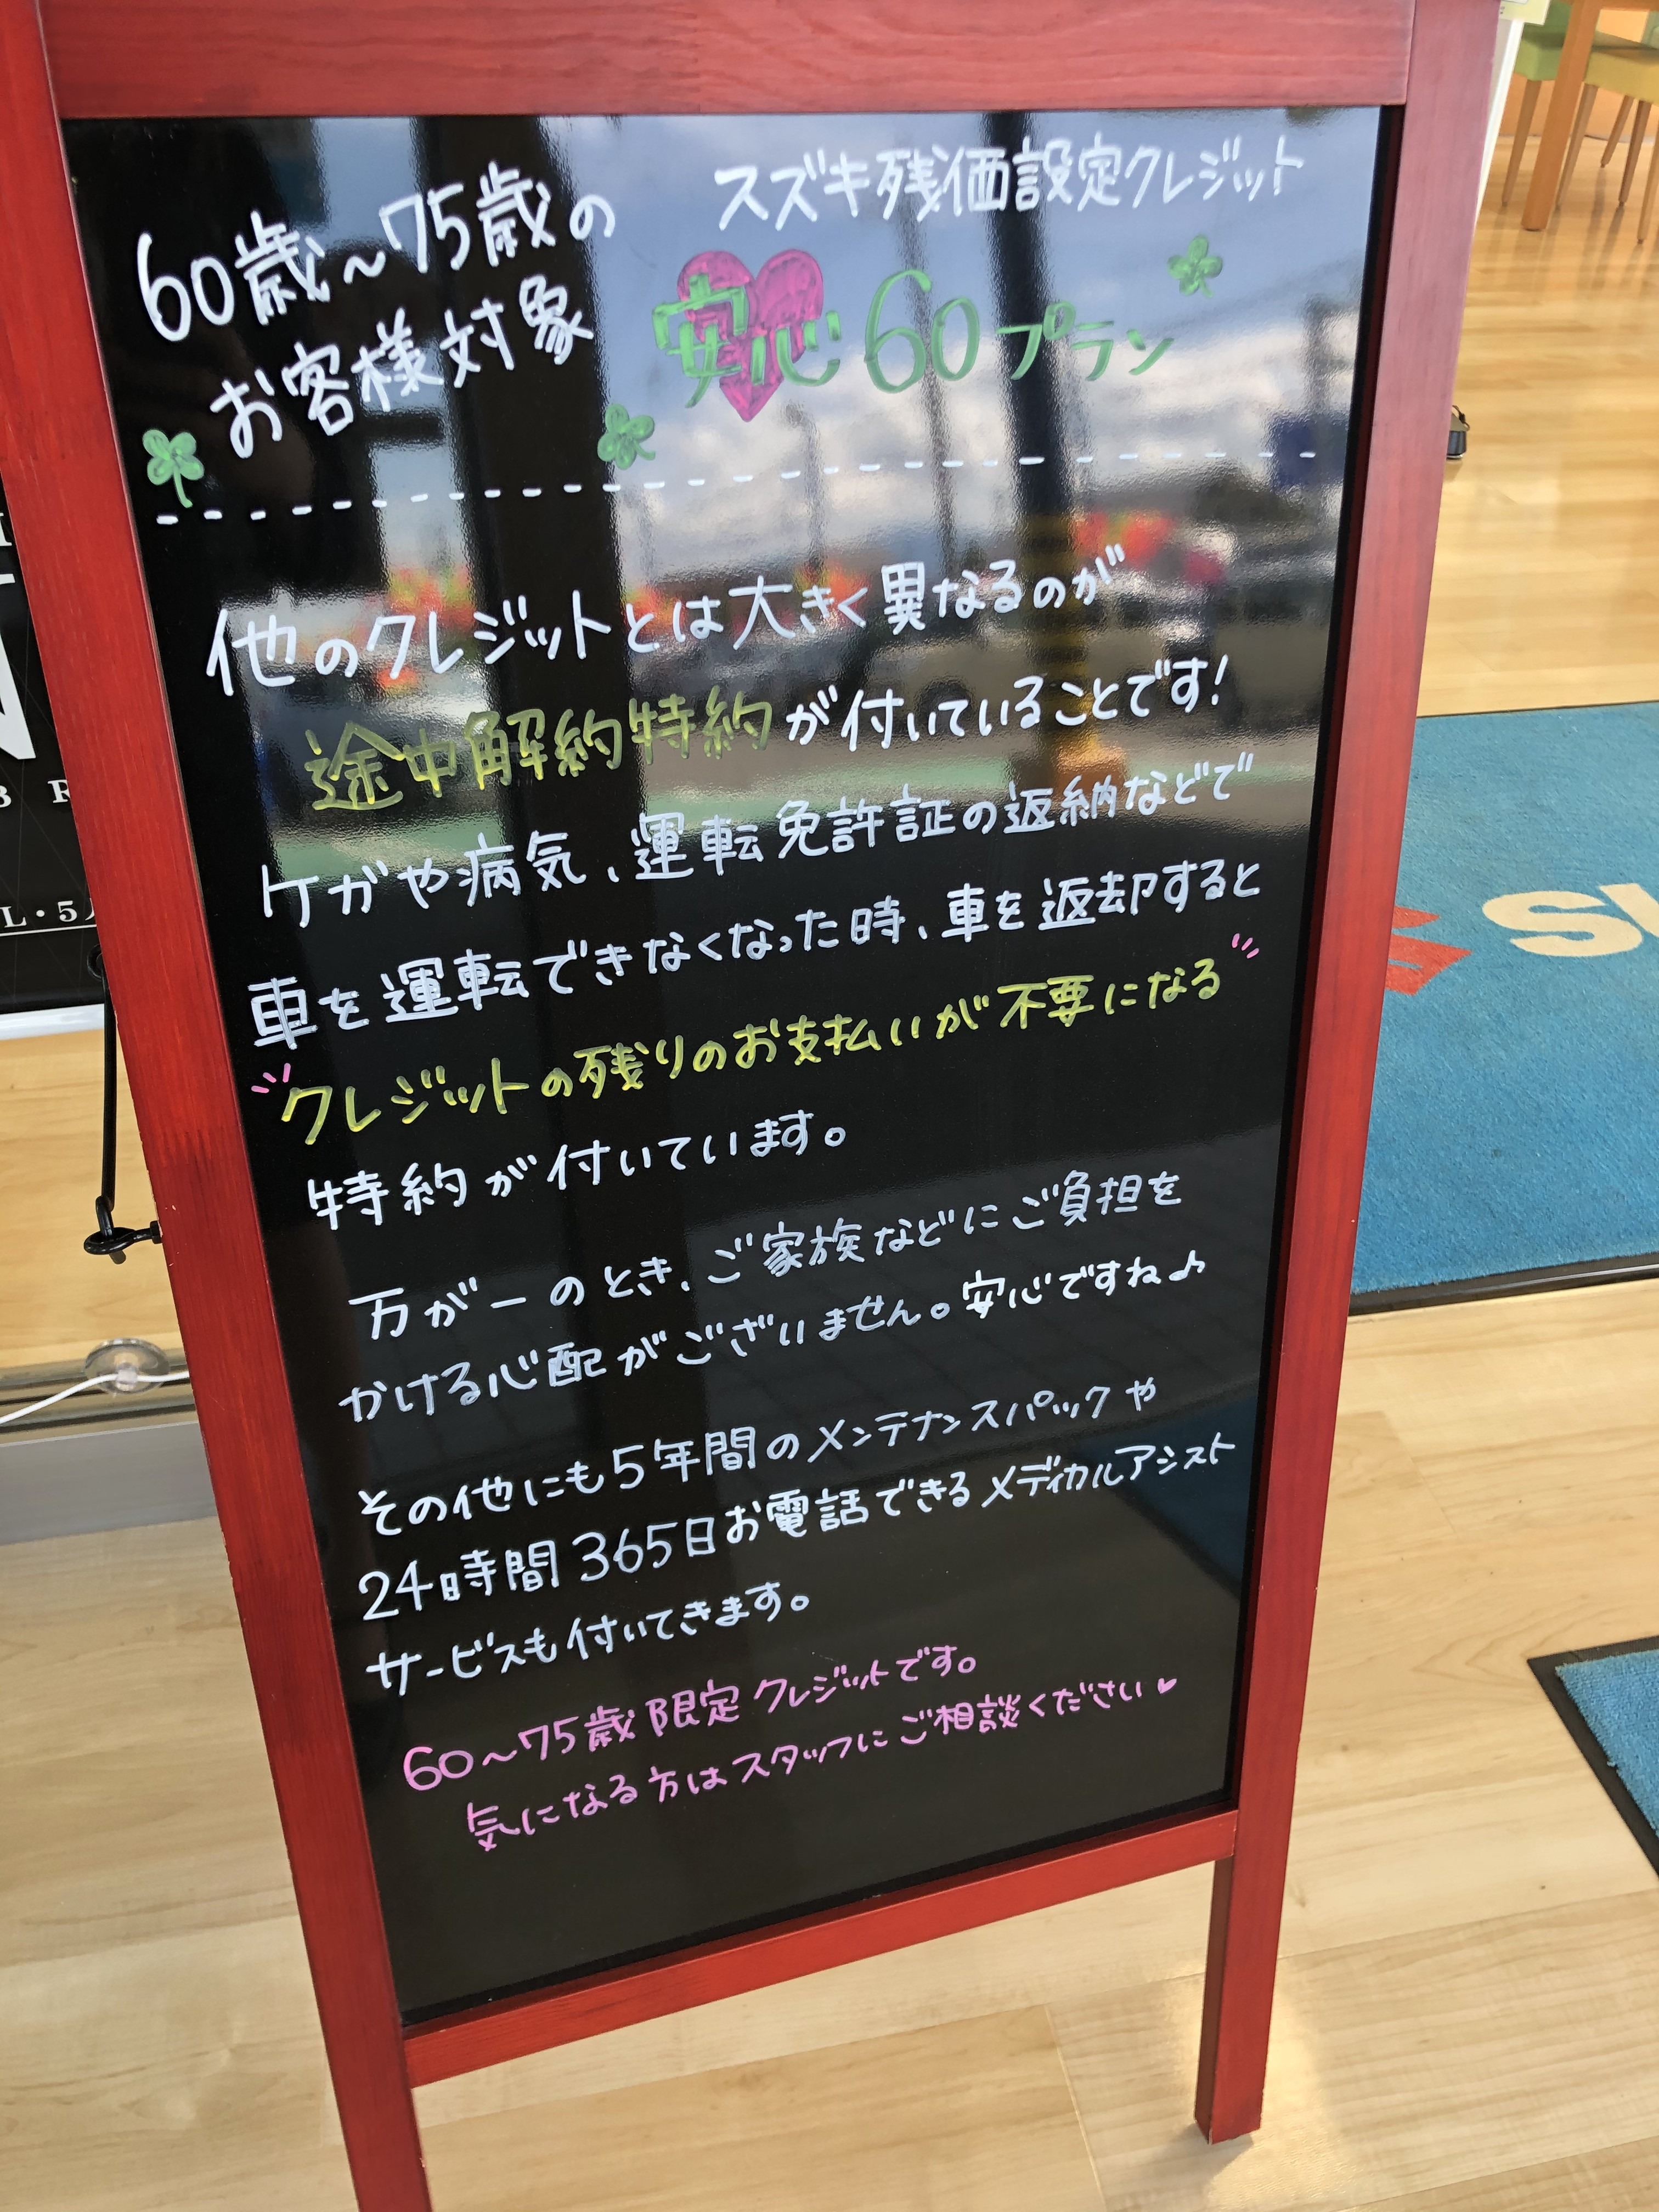 60歳～75歳の
お客様対象
スズキ残価設定クレジット
安心60プラン
他のクレジットとは大きく異なるのが
途中解約特約が付いていることです!
ケガや病気、運転免許証の返納などで
車を運転できなくなった時、車を返却すると
クレジットの残りのお支払いが不要になる
特約が付いています。
万が一のとき、ご家族などにご負担を
かける心配がございません。安心ですね♪
その他にも5年間のメンテナンスパックや
24時間365日お電話できるメディカルアシスト
サービスも付いてきます。
60～75歳限定クレジットです。
気になる方はスタッフにご相談ください♥